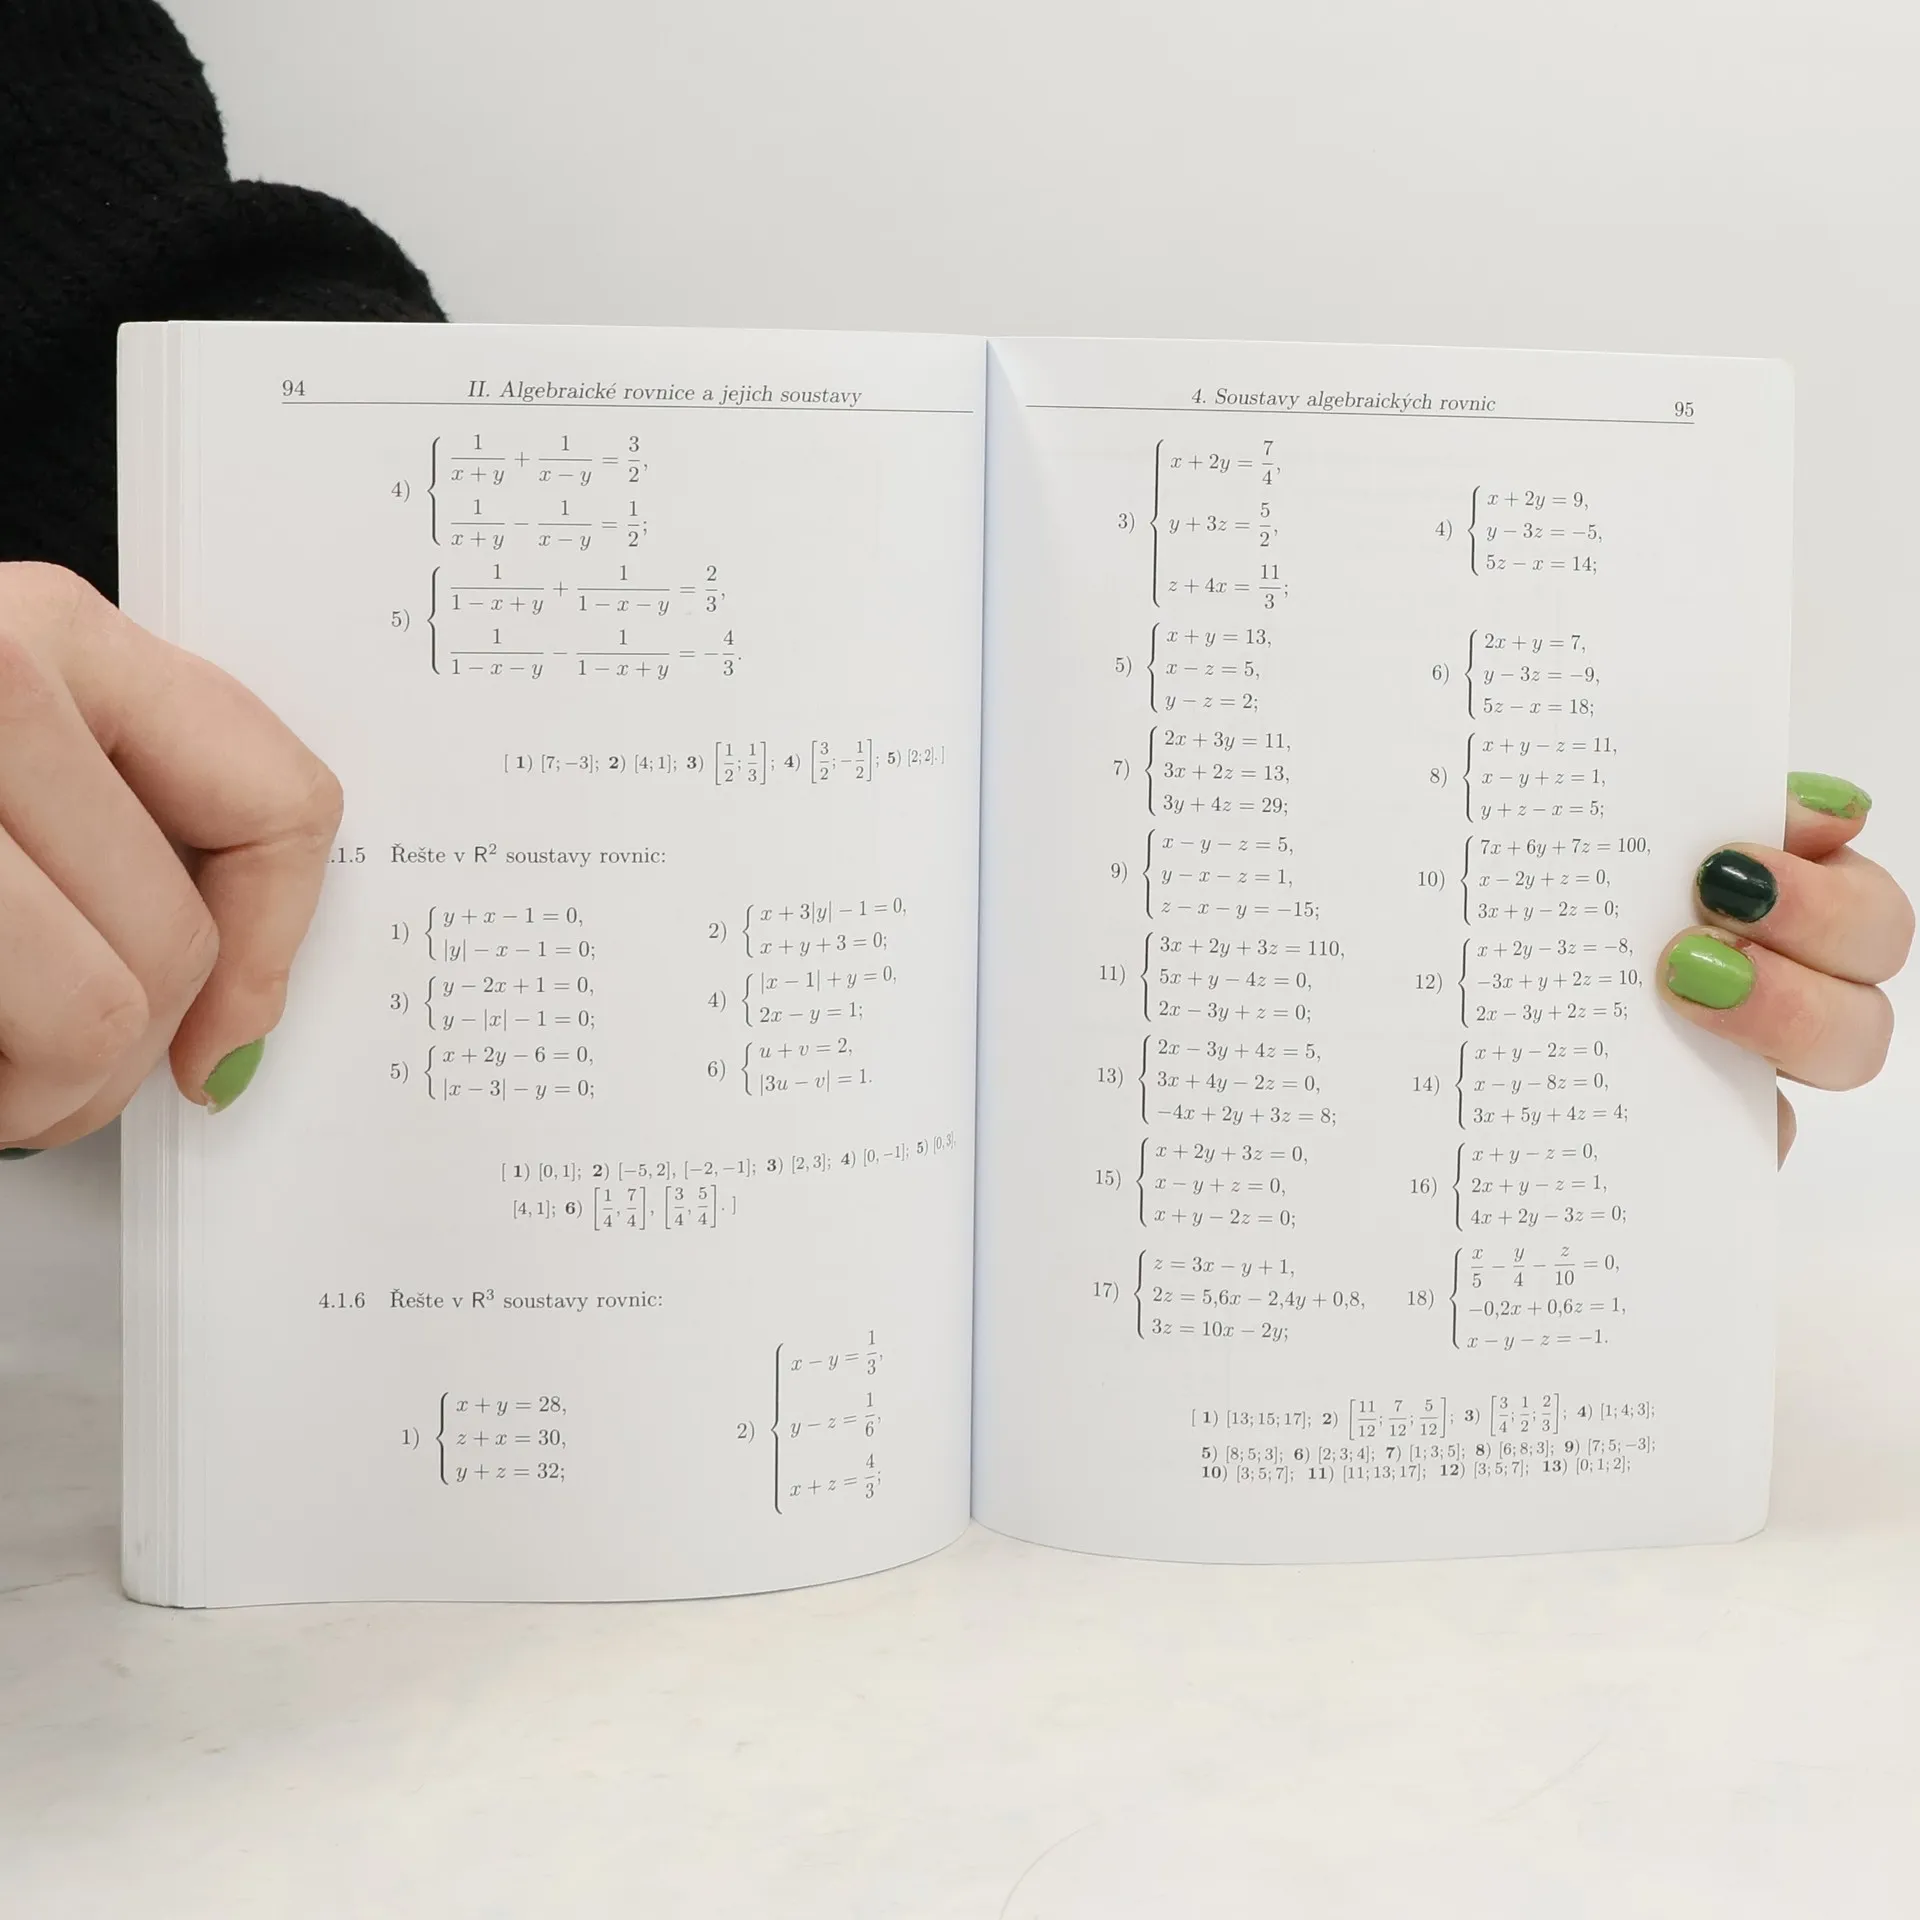 94 II. Algebraické rovnice a jejich soustavy
4) { 1/(x + y) + 1/(x − y) = 3/2,
1/(x + y) − 1/(x − y) = 1/2;
5) { 1/(1 − x + y) + 1/(1 − x − y) = 2/3,
1/(1 − x − y) − 1/(1 − x + y) = −4/3.
[ 1) [7; −3]; 2) [4; 1]; 3) [1/2; 1/3]; 4) [3/2; −1/2]; 5) [2; 2]. ]
.1.5 Řešte v R² soustavy rovnic:
1) { y + x − 1 = 0,
|y| − x − 1 = 0;
2) { x + 3|y| − 1 = 0,
x + y + 3 = 0;
3) { y − 2x + 1 = 0,
y − |x| − 1 = 0;
4) { |x − 1| + y = 0,
2x − y = 1;
5) { x + 2y − 6 = 0,
|x − 3| − y = 0;
6) { u + v = 2,
|3u − v| = 1.
[ 1) [0, 1]; 2) [−5, 2], [−2, −1]; 3) [2, 3]; 4) [0, −1]; 5) [0, 3],
[4, 1]; 6) [1/4, 7/4], [3/4, 5/4]. ]
4.1.6 Řešte v R³ soustavy rovnic:
1) { x + y = 28,
z + x = 30,
y + z = 32;
2) { x − y = 1/3,
y − z = 1/6,
x + z = 4/3;
4. Soustavy algebraických rovnic 95
3) { x + 2y = 7/4,
y + 3z = 5/2,
z + 4x = 11/3;
4) { x + 2y = 9,
y − 3z = −5,
5z − x = 14;
5) { x + y = 13,
x − z = 5,
y − z = 2;
6) { 2x + y = 7,
y − 3z = −9,
5z − x = 18;
7) { 2x + 3y = 11,
3x + 2z = 13,
3y + 4z = 29;
8) { x + y − z = 11,
x − y + z = 1,
y + z − x = 5;
9) { x − y − z = 5,
y − x − z = 1,
z − x − y = −15;
10) { 7x + 6y + 7z = 100,
x − 2y + z = 0,
3x + y − 2z = 0;
11) { 3x + 2y + 3z = 110,
5x + y − 4z = 0,
2x − 3y + z = 0;
12) { x + 2y − 3z = −8,
−3x + y + 2z = 10,
2x − 3y + 2z = 5;
13) { 2x − 3y + 4z = 5,
3x + 4y − 2z = 0,
−4x + 2y + 3z = 8;
14) { x + y − 2z = 0,
x − y − 8z = 0,
3x + 5y + 4z = 4;
15) { x + 2y + 3z = 0,
x − y + z = 0,
x + y − 2z = 0;
16) { x + y − z = 0,
2x + y − z = 1,
4x + 2y − 3z = 0;
17) { z = 3x − y + 1,
2z = 5,6x − 2,4y + 0,8,
3z = 10x − 2y;
18) { x/5 − y/4 − z/10 = 0,
−0,2x + 0,6z = 1,
x − y − z = −1.
[ 1) [13; 15; 17]; 2) [11/12; 7/12; 5/12]; 3) [3/4; 1/2; 2/3]; 4) [1; 4; 3];
5) [8; 5; 3]; 6) [2; 3; 4]; 7) [1; 3; 5]; 8) [6; 8; 3]; 9) [7; 5; −3];
10) [3; 5; 7]; 11) [11; 13; 17]; 12) [3; 5; 7]; 13) [0; 1; 2];